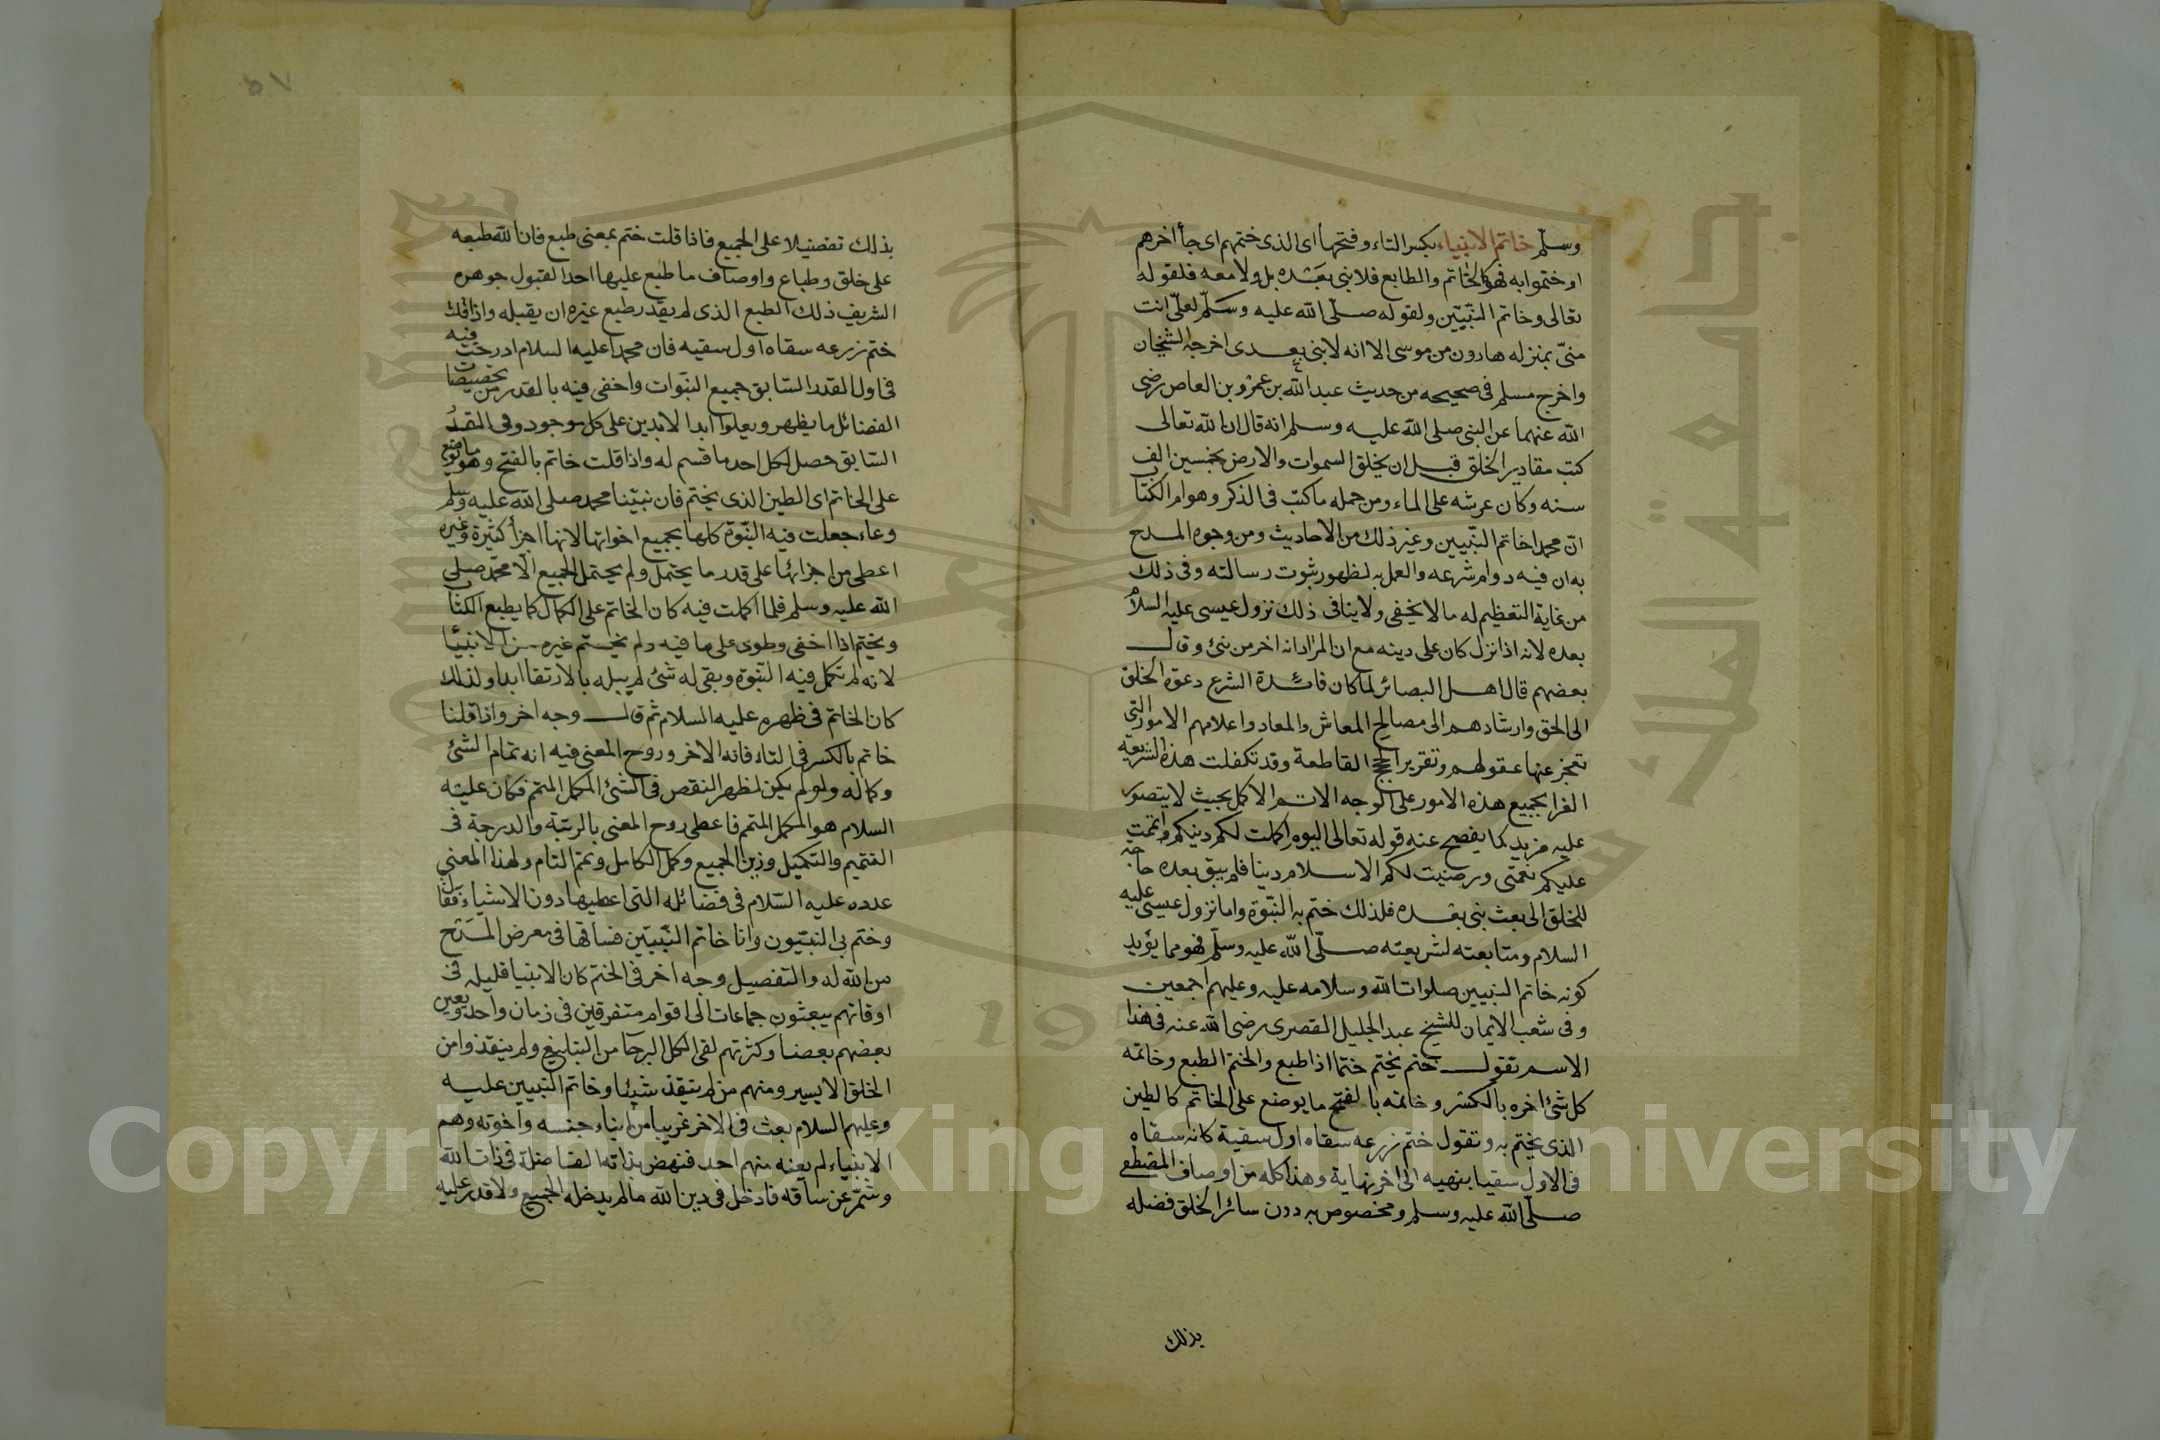 وسلّم خاتم الانبياء بكسر التاء وفتحها اى الذى ختمهم اى جأ اخرهم
او ختموا به فهو كالخاتم والطابع فلا نبى بعده بل ولا معه فلقوله
تعالى وخاتم النّبيّين ولقوله صلّى الله عليه وسلّم لعلىّ انت
منىّ بمنزله هارون من موسى الا انه لا نبى بعدى اخرجه الشيخان
واخرج مسلم فى صحيحه من حديث عبد الله بن عمرو بن العاص رضى
الله عنهما عن النبى صلى الله عليه وسلم انه قال ان الله تعالى
كتب مقادير الخلق قبل ان يخلق السموات والارض بخمسين الف
سنه وكان عرشه على الماء ومن جمله ما كتب فى الذكر وهو ام الكتاب
انّ محمدا خاتم النّبيين وغير ذلك من الاحاديث ومن وجوه المدح
به ان فيه دوام شرعه والعمل به لظهور ثبوت رسالته وفى ذلك
من غاية التعظيم له ما لا يخفى ولا ينافى ذلك نزول عيسى عليه السلام
بعده لانه اذا نزل كان على دينه مع ان المراد انه اخر من نبئ وقال
بعضهم قال اهل البصائر لما كان فائدة الشرع دعوة الخلق
الى الحق وارشادهم الى مصالح المعاش والمعاد واعلامهم الامور التى
تعجز عنها عقولهم وتقرير الحجج القاطعة وقد تكفلت هذه الشريعة
الغرا بجميع هذه الامور على الوجه الاتم الاكمل بحيث لا يتصور
عليه مزيد كما يفصح عنه قوله تعالى اليوم اكملت لكم دينكم واتممت
عليكم نعمتى ورضيت لكم الاسلام دينا فلم يبق بعده حاجة
للخلق الى بعث نبى بعده فلذلك ختم به النّبوّة واما نزول عيسى عليه
السلام ومتابعته لشريعته صلّى الله عليه وسلّم فهو مما يؤيد
كونه خاتم النبيين صلوات الله وسلامه عليه وعليهم اجمعين
وفى شعب الايمان للشيخ عبد الجليل القصرى رضى الله عنه فى هذا
الاسم تقول ختم يختم ختما اذا طبع والختم الطبع وخاتمه
كل شئ اخره بالكسر وخاتمه بالفتح ما يوضع على الخاتم كالطين
الذى يختم به وتقول ختم زرعه سقاه اول سقية كانه سقاه
فى الاول سقيا ينهيه الى اخر نهاية وهذا كله من اوصاف المصطفى
صلّى الله عليه وسلم ومخصوص به دون سائر الخلق فضله
بذلك
٥٧
بذلك تفضيلا على الجميع فاذا قلت ختم بمعنى طبع فان الله طبعه
على خلق وطباع واوصاف ما طبع عليها احدا لقبول جوهره
الشريف ذلك الطبع الذى لم يقدر طبع غيره ان يقبله واذا قلت
ختم زرعه سقاه اول سقيه فان محمدا عليه السلام ادرجت فيه
فى اول القدر السّابق جميع النبّوات واخفى فيه بالقدر من تخصيصات
الفضائل ما يظهر ويعلوا ابد الابدين على كل موجود وفى القدر
السّابق حصل لكل احد ما قسم له واذا قلت خاتم بالفتح وهو ما يوضع
على الخاتم اى الطين الذى يختم فان نبيّنا محمد صلى الله عليه وسلم
وعاء جعلت فيه النّبوّة كلها بجميع اخواتها لانها اجزأ كثيرة وغيره
اعطى من اجزائها على قدر ما يحتمل ولم يحتمل الجميع الّا محمّد صلى
الله عليه وسلم فلما اكملت فيه كان الخاتم على الكمال كما يطبع الكتاب
ويختم اذا اخفى وطوى على ما فيه ولم يختم غيره من الانبيا
لانه لم تكمل فيه النّبوّة وبقى له شئ لم ينله بالارتقا ابدا ولذلك
كان الخاتم فى ظهره عليه السلام ثم قال وجه اخر واذا قلنا
خاتم بالكسر فى التاء فانه الاخر وروح المعنى فيه انه تمام الشئ
وكماله ولو لم يكن لظهر النقص فى الشئ المكمل المتمم فكان عليه
السلام هو المكمل المتمم فاعطى روح المعنى بالرتبة والدرجة فى
التتميم والتكميل وزين الجميع وكمل الكامل وتمم التام ولهذا المعنى
عدده عليه السّلام فى فضائله التى اعطيها دون الاشياء فقال
وختم بى النبيّون وانا خاتم النّبيّين فساقها فى معرض المدح
من الله له والتفصيل وجه اخر فى الختم كان الانبيا قليله فى
اوقاتهم يبعثون جماعات الى اقوام متفرقين فى زمان واحد يعين
بعضهم بعضا وكثرتهم لقى الكل البرحا من التبليغ ولم ينقذوا من
الخلق الا يسير ومنهم من لم ينقذ شيئا وخاتم النبيين عليه
وعليهم السلام بعث فى الاخر غريبا من ابناء جنسه واخوته وهم
الانبياء لم يعنه منهم احد فنهض بذاته الفاضلة فى ذات الله
وشمّر عن ساقه فادخل فى دين الله ما لم يدخله الجميع ولا قدر عليه
Copyright © King Saud University